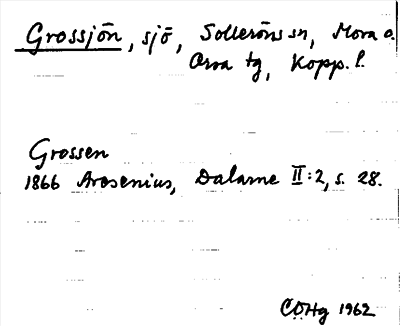 Grossjön, sjö, Solleröns sn, Mora o.
Orsa tg, Kopp. l.
Grossen
1866 Arosenius, Dalarne II:2, s. 28.
COHg 1962